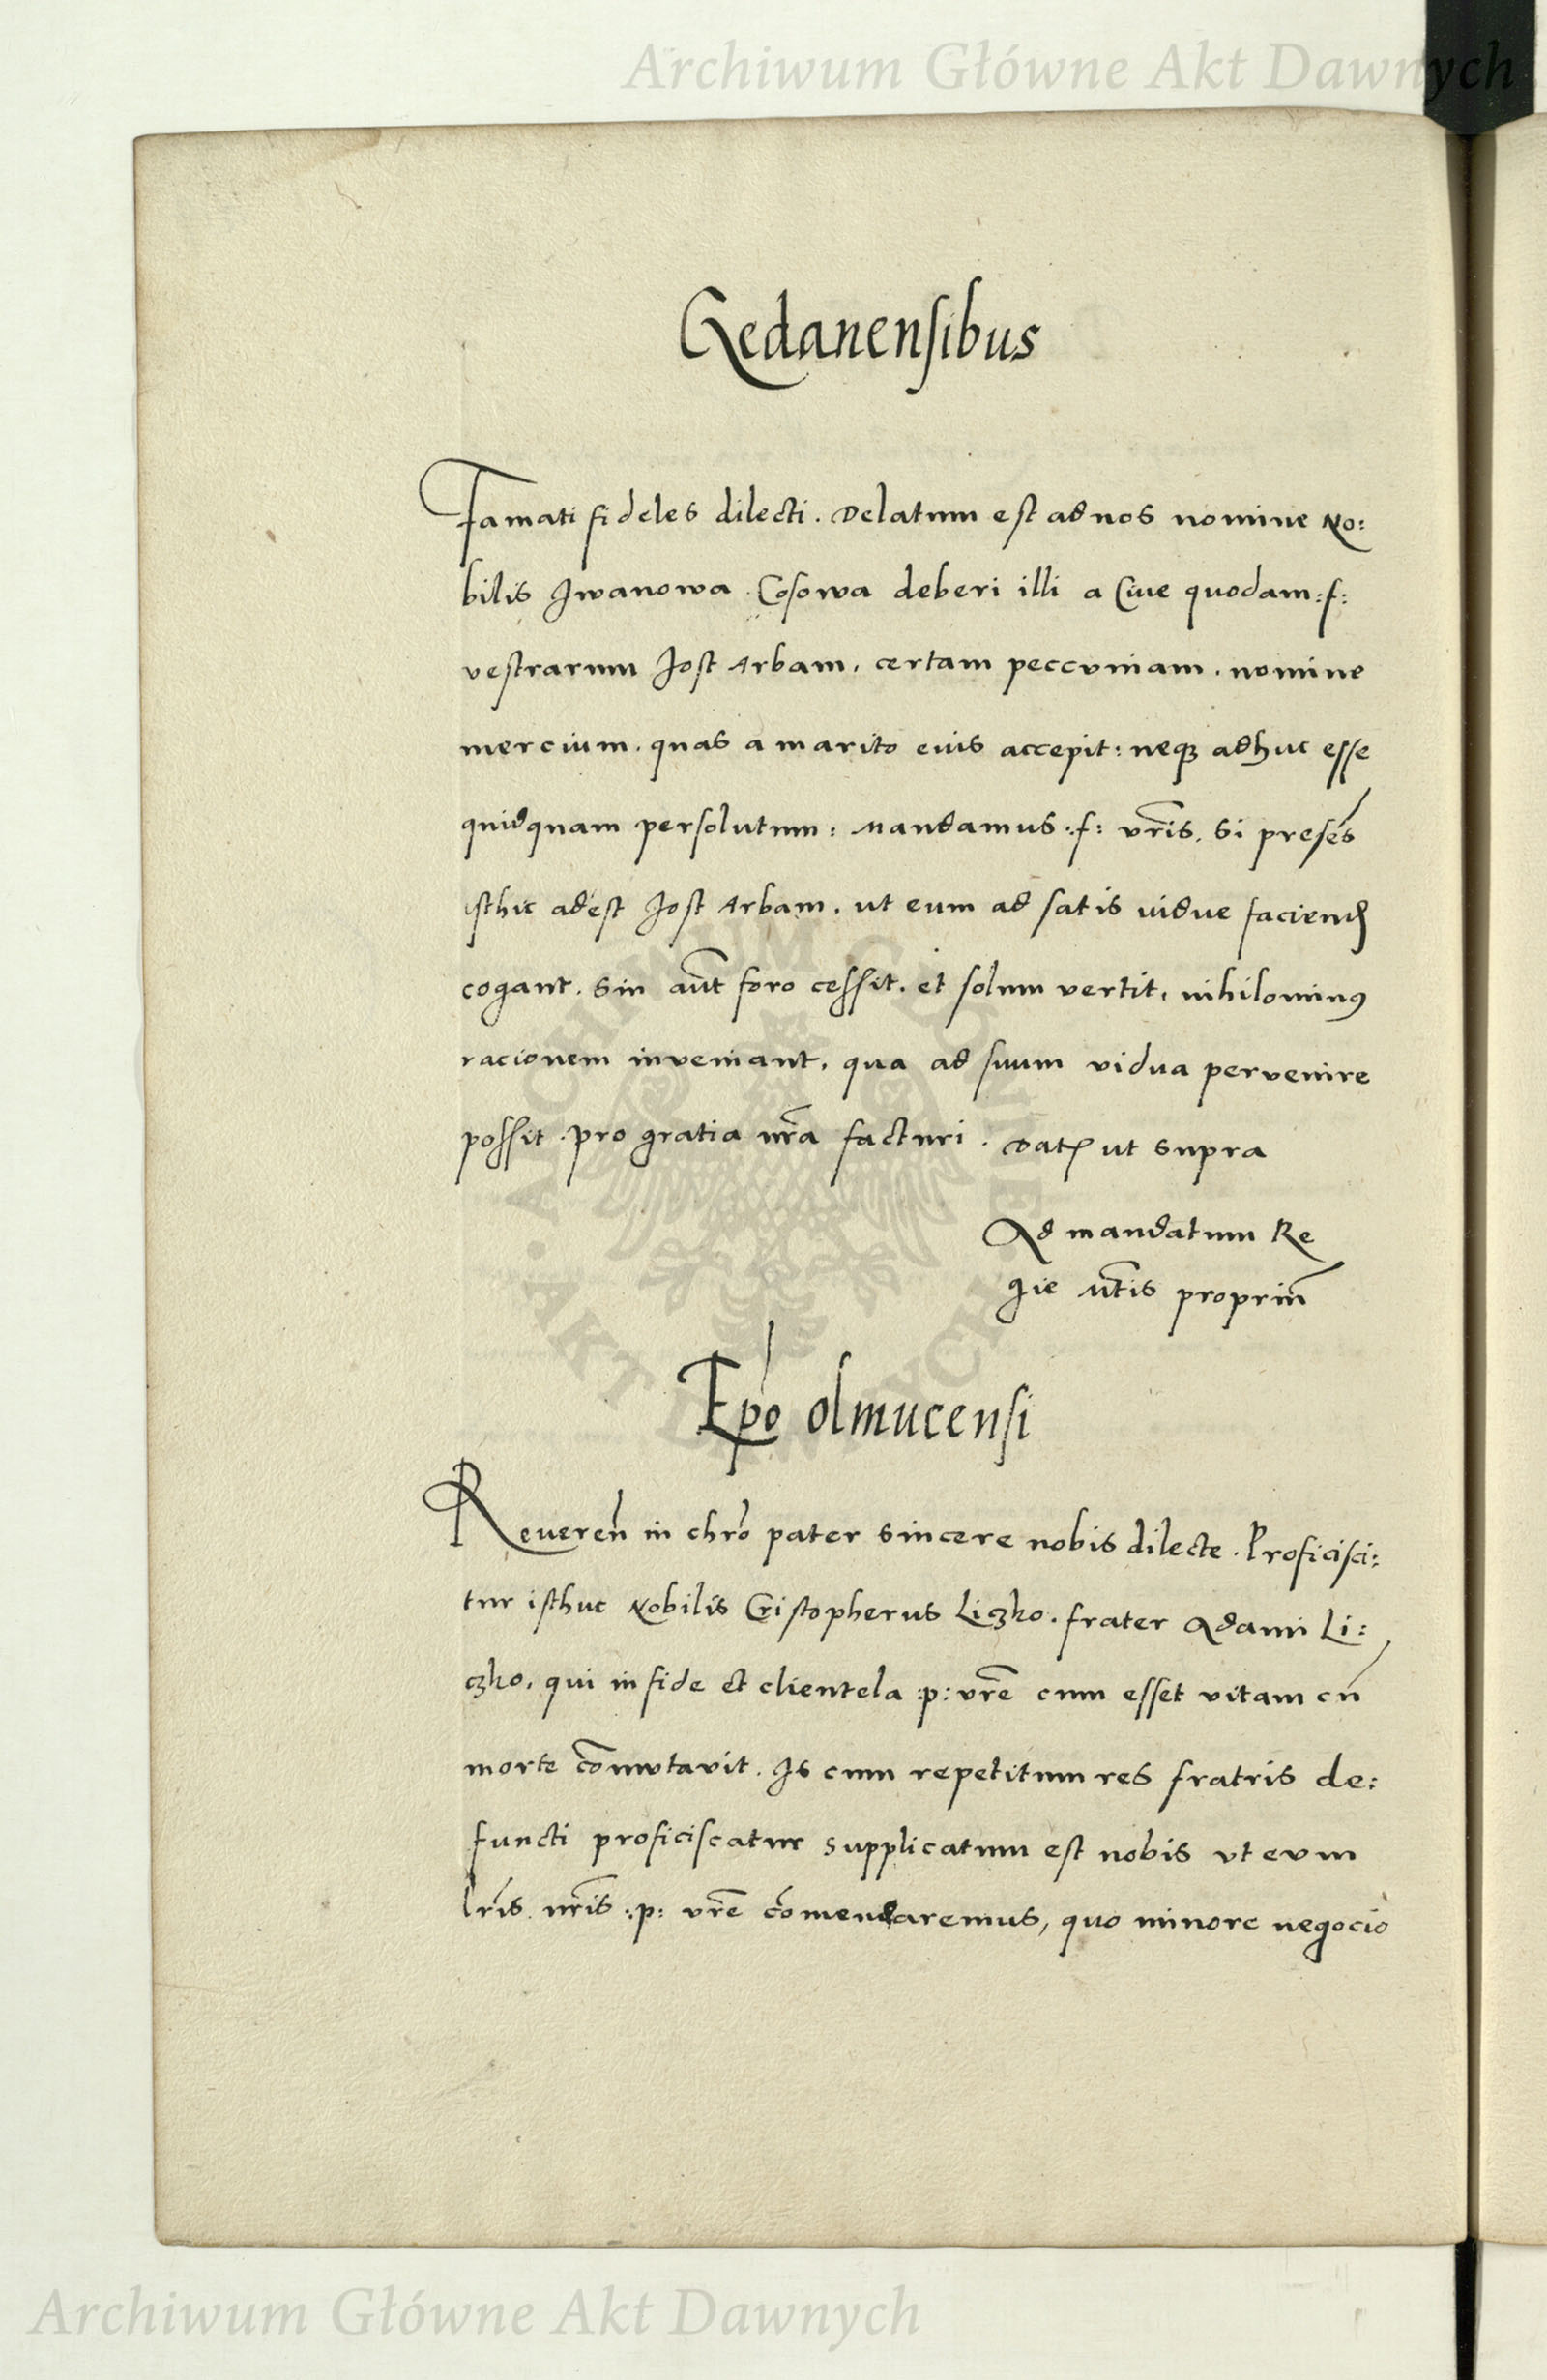 Archiwum Główne Akt Dawnych
Gedanensibus
Famati fideles dilecti. Delatum est ad nos nomine No:
bilis Iwanowa Cosowa deberi illi a Cive quodam :f:
vestrarum Jost Arbam, certam peccvniam, nomine
mercium, quas a marito eius accepit: neqꝫ adhuc esse
quidquam persolutum: Mandamus :f: vr̃is, Si presẽs
isthic adest Jost Arbam, ut eum ad satis vidue faciendꝭ
cogant. Sin aũt foro cessit, et solum vertit, nihilominꝰ
racionem inveniant, qua ad suum vidua pervenire
possit. pro gratia nr̃a facturi. Datꝭ ut supra
Ad mandatum Re
gie Mtis propriũ
Ep̃o olmucensi
Reueren̄ in chr̃o pater sincere nobis dilecte. Proficisci:
tur isthuc Nobilis Cristopherus Liczko, frater Adami Li:
czko, qui in fide et clientela :p: vr̃e cum esset vitam cũ
morte cõmvtavit. Is cum repetitum res fratris de:
functi proficiscatur supplicatum est nobis vt evm
lr̃is nr̃is :p: vr̃e cõmendaremus, quo minore negocio
ARCHIWUM GŁÓWNE AKT DAWNYCH
Archiwum Główne Akt Dawnych